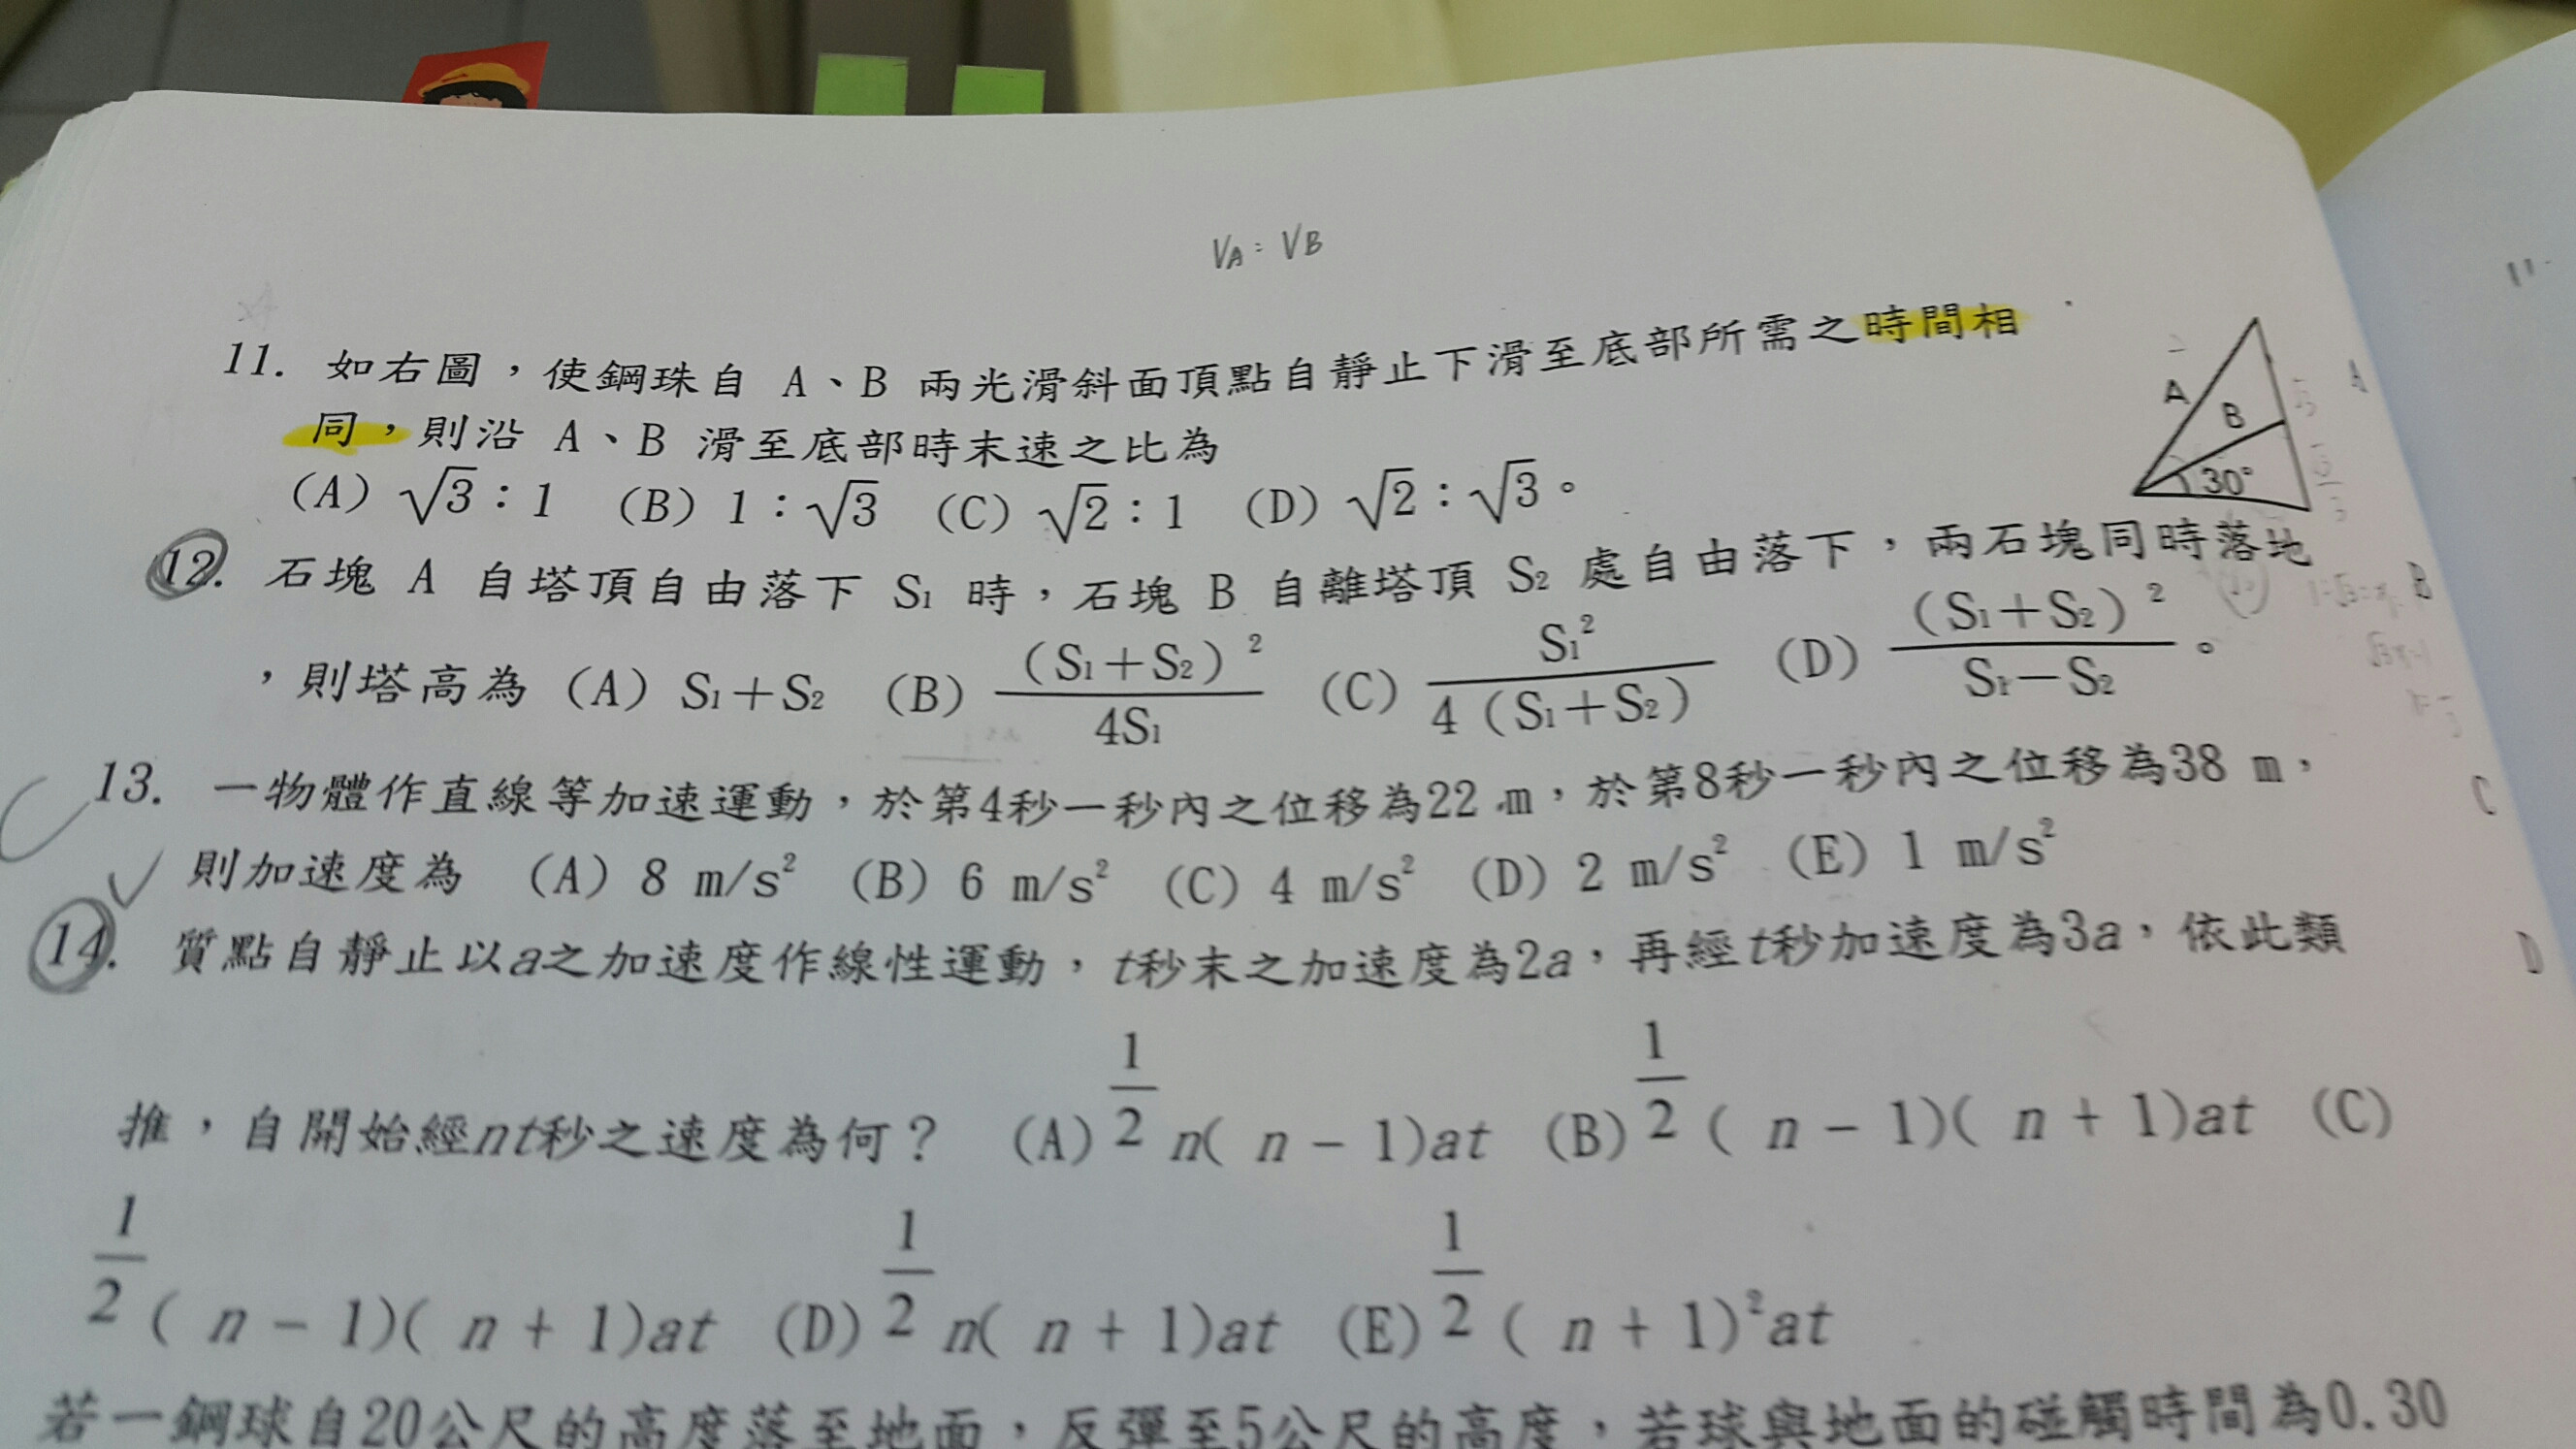 VA = VB
11. 如右圖，使鋼珠自 A、B 兩光滑斜面頂點自靜止下滑至底部所需之時間相
同，則沿 A、B 滑至底部時末速之比為
(A) √3：1 (B) 1：√3 (C) √2：1 (D) √2：√3。
A
B
30°
12. 石塊 A 自塔頂自由落下 S₁ 時，石塊 B 自離塔頂 S₂ 處自由落下，兩石塊同時落地
，則塔高為 (A) S₁＋S₂ (B) (S₁＋S₂)²/4S₁ (C) S₁²/4(S₁＋S₂) (D) (S₁＋S₂)²/S₁－S₂。
13. 一物體作直線等加速運動，於第4秒一秒內之位移為22 m，於第8秒一秒內之位移為38 m，
則加速度為 (A) 8 m/s² (B) 6 m/s² (C) 4 m/s² (D) 2 m/s² (E) 1 m/s²
14. 質點自靜止以a之加速度作線性運動，t秒末之加速度為2a，再經t秒加速度為3a，依此類
推，自開始經nt秒之速度為何？ (A) 1/2 n( n − 1)at (B) 1/2 ( n − 1)( n + 1)at (C)
1/2 ( n − 1)( n + 1)at (D) 1/2 n( n + 1)at (E) 1/2 ( n + 1)²at
若一鋼球自20公尺的高度落至地面，反彈至5公尺的高度，若球與地面的碰觸時間為0.30